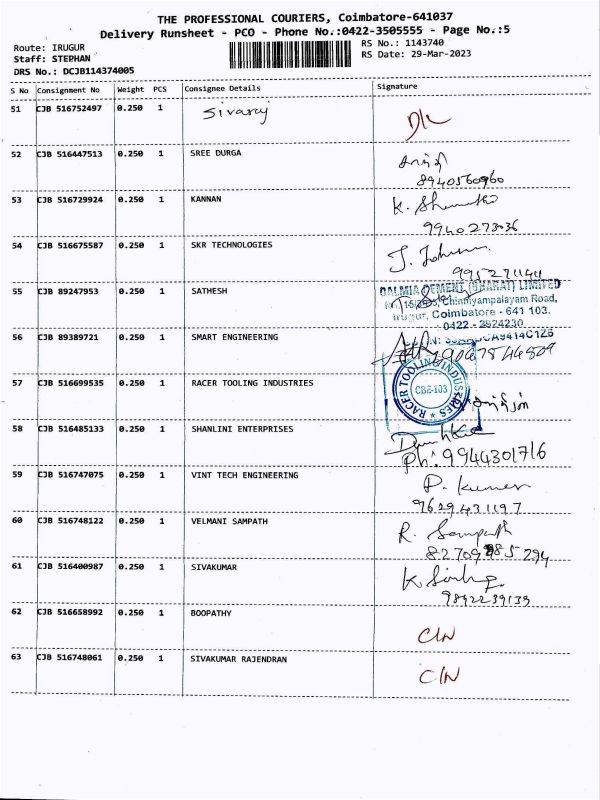 THE PROFESSIONAL COURIERS, Coimbatore-641037
Delivery Runsheet - PCO - Phone No.:0422-3505555 - Page No.:5
Route: IRUGUR
Staff: STEPHAN
DRS No.: DCJB114374005
RS No.: 1143740
RS Date: 29-Mar-2023
S No Consignment No Weight PCS Consignee Details Signature
51 CJB 516752497 0.250 1 Sivaraj D/L
52 CJB 516447513 0.250 1 SREE DURGA
8940560960
53 CJB 516729924 0.250 1 KANNAN
9940273036
54 CJB 516675587 0.250 1 SKR TECHNOLOGIES
55 CJB 89247953 0.250 1 SATHESH
DALMIA CEMENT (BHARAT) LIMITED
Chinniyampalayam Road,
Irugur, Coimbatore - 641 103.
56 CJB 89389721 0.250 1 SMART ENGINEERING
57 CJB 516699535 0.250 1 RACER TOOLING INDUSTRIES
RACER TOOLING INDUSTRIES
CBE-103
58 CJB 516485133 0.250 1 SHANLINI ENTERPRISES
Ph: 9944301716
59 CJB 516747075 0.250 1 VINT TECH ENGINEERING P. Kumar
9629431197
60 CJB 516748122 0.250 1 VELMANI SAMPATH R. Sampath
61 CJB 516400987 0.250 1 SIVAKUMAR
9842239139
62 CJB 516658992 0.250 1 BOOPATHY C/N
63 CJB 516748061 0.250 1 SIVAKUMAR RAJENDRAN C/N